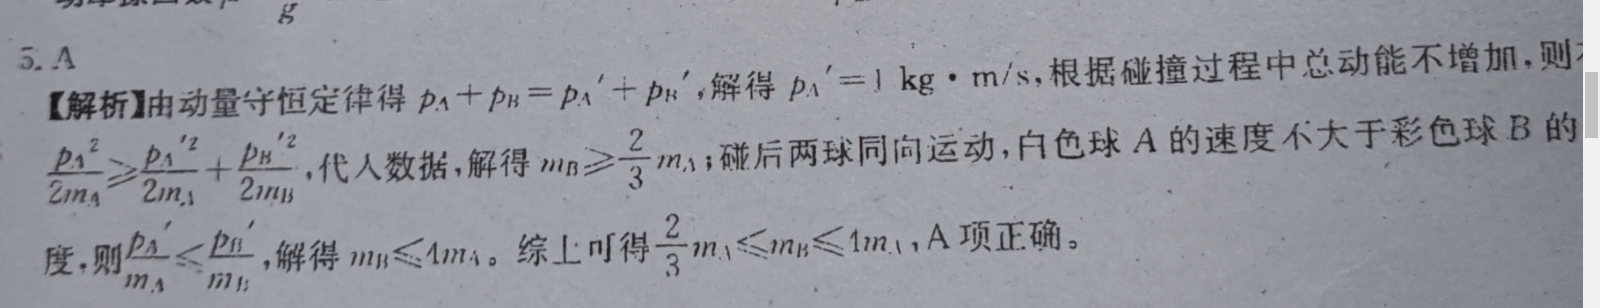 g
5. A
【解析】由动量守恒定律得 pA+pB=pA′+pB′,解得 pA′=1 kg·m/s,根据碰撞过程中总动能不增加,则有
pA²/2mA≥pA′²/2mA+pB′²/2mB,代入数据,解得 mB≥2/3 mA;碰后两球同向运动,白色球 A 的速度不大于彩色球 B 的
度,则pA′/mA≤pB′/mB,解得 mB≤4mA。综上可得2/3 mA≤mB≤4mA,A 项正确。